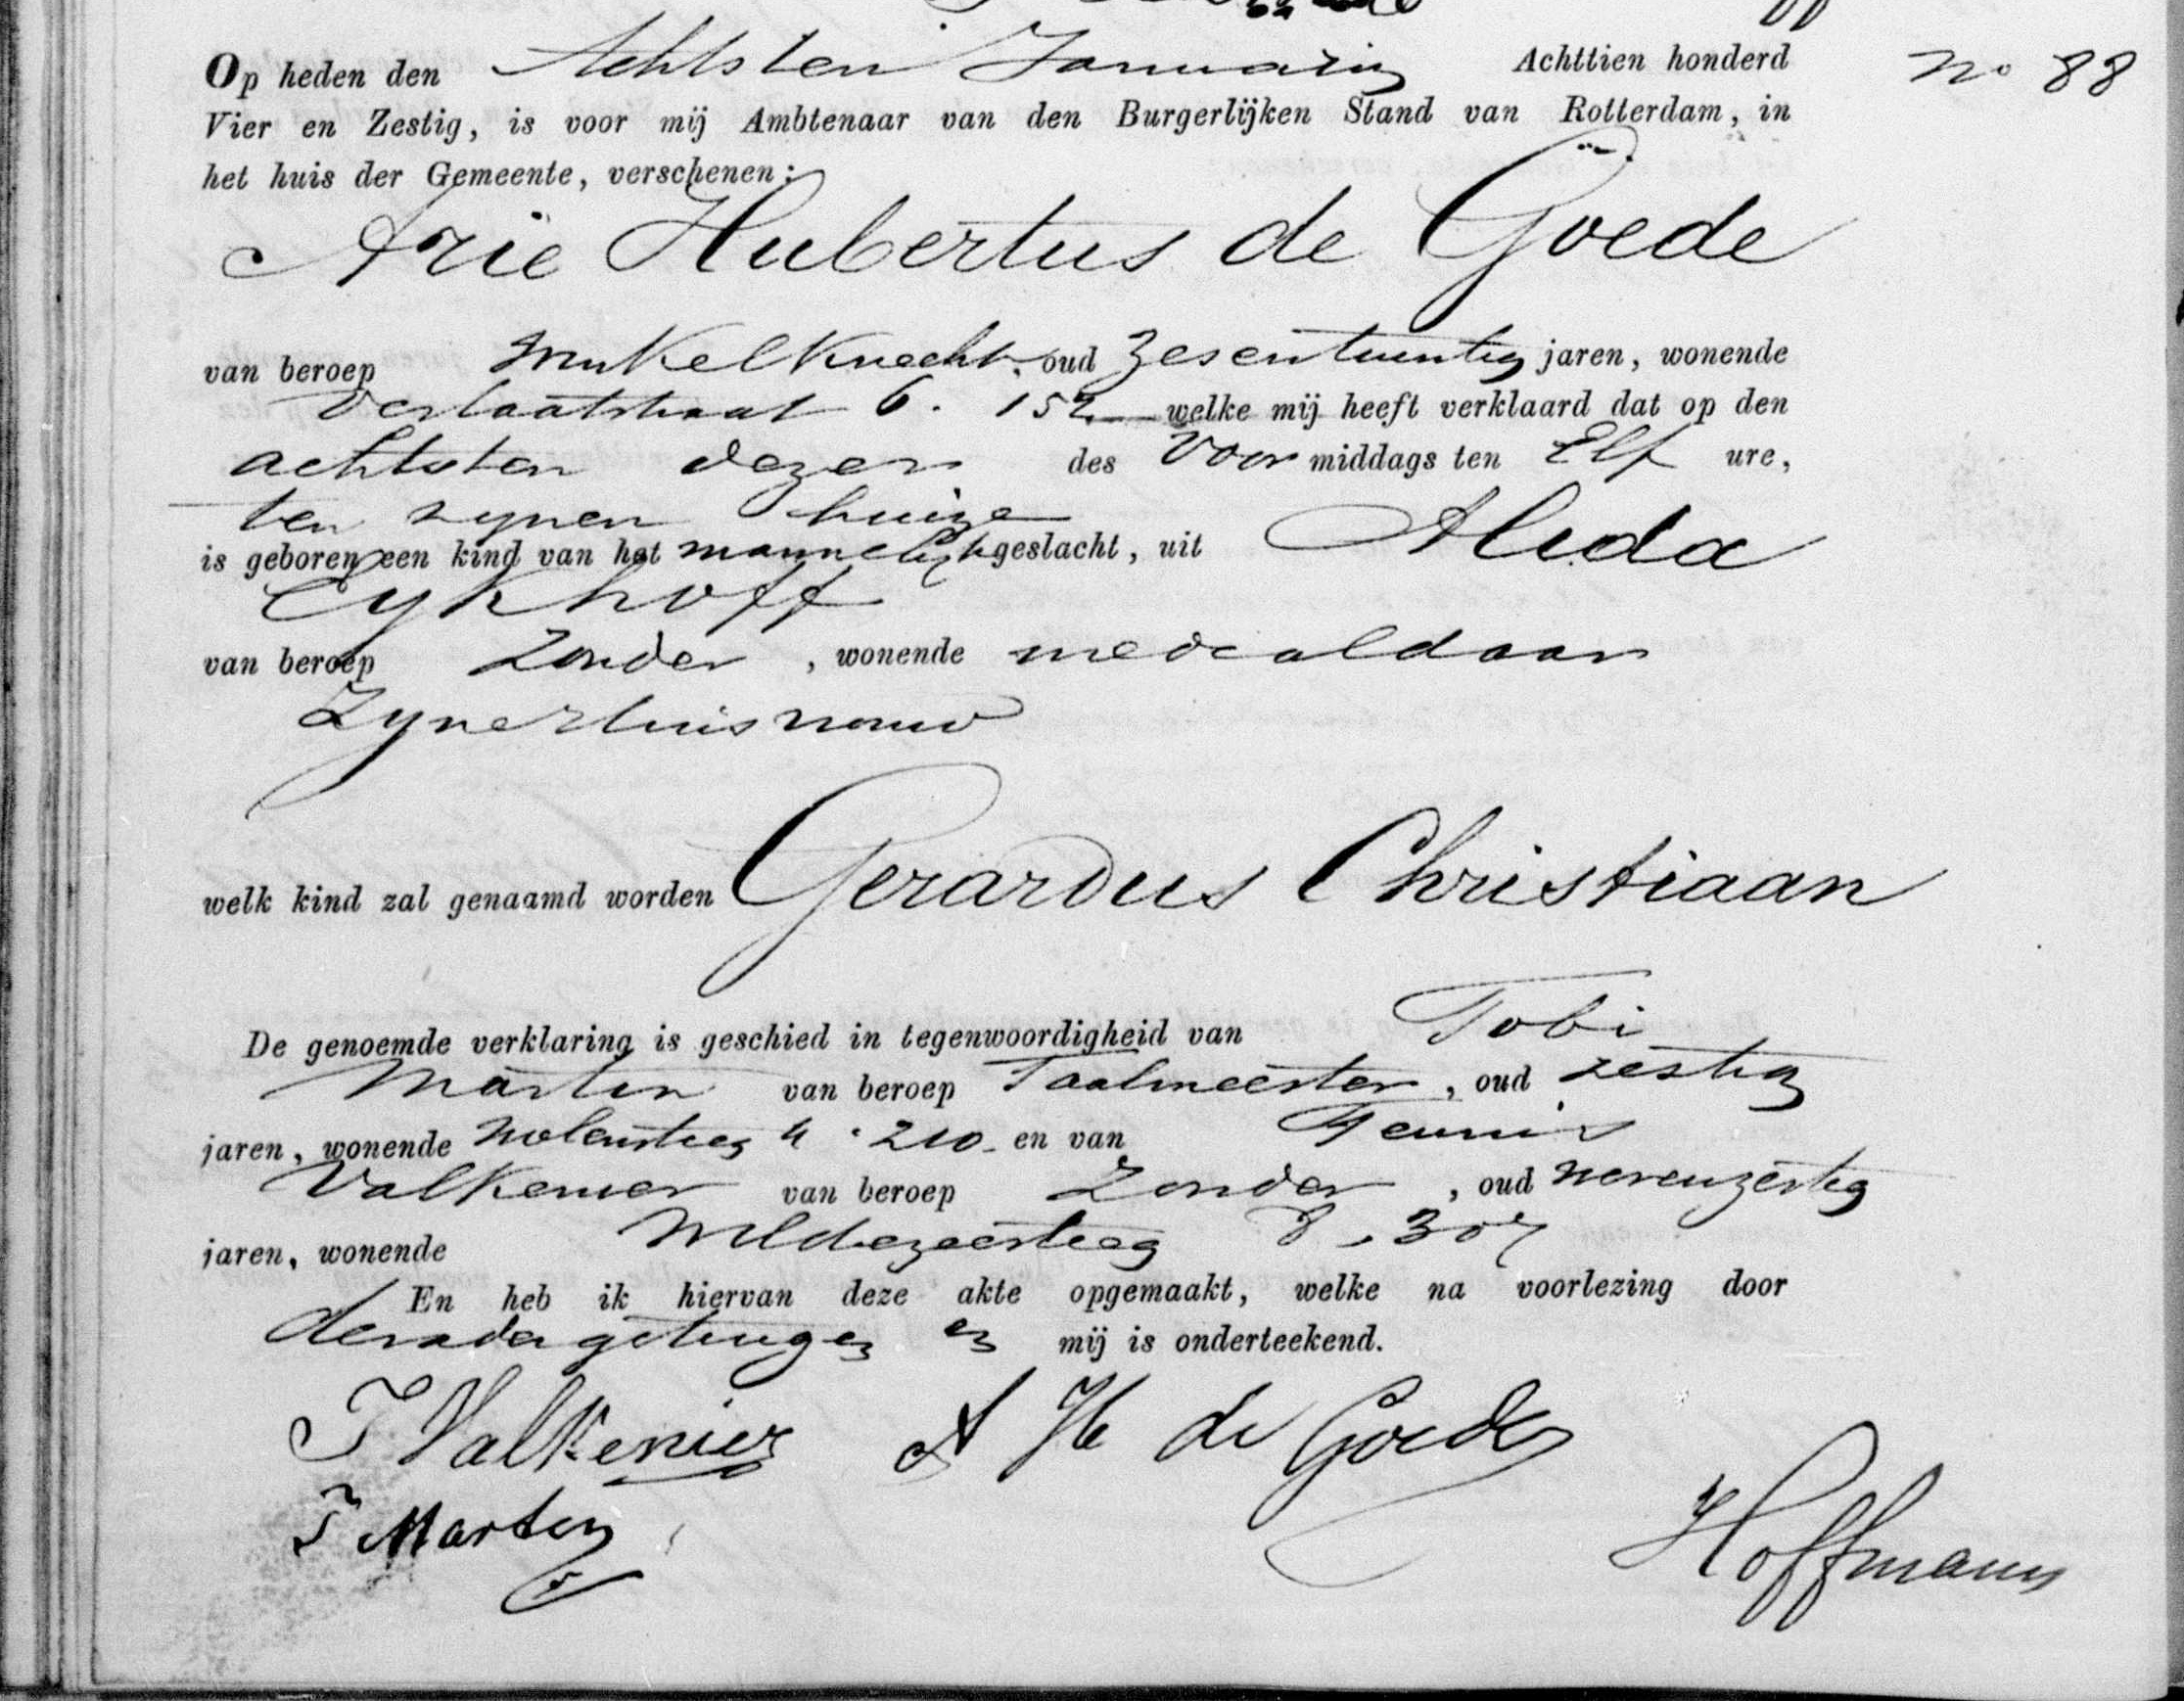 Op heden den Achtsten Januarij Achttien honderd
No 88
Vier en Zestig, is voor mij Ambtenaar van den Burgerlijken Stand van Rotterdam, in
het huis der Gemeente, verschenen:
Arië Hubertus de Goede
van beroep Winkelknecht, oud Zesentwintig jaren, wonende
Verlaatstraat 6. 152 welke mij heeft verklaard dat op den
achtsten dezer des Voor middags ten Elf ure,
ten zynen huize
is geboren een kind van het mannelijk geslacht, uit Alida
Eykhoff
van beroep Zonder, wonende mede aldaar
Zyne huisvrouw
welk kind zal genaamd worden Gerardus Christiaan
De genoemde verklaring is geschied in tegenwoordigheid van Tobi
Marten van beroep Taalmeester, oud zestig
jaren, wonende Molensteeg 4. 210. en van Teunis
Valkenier van beroep Zonder, oud
jaren, wonende Wildezeesteeg 8. 307
En heb ik hiervan deze akte opgemaakt, welke na voorlezing door
getuigen en mij is onderteekend.
T Valkenier A H de Goede
T Marten
Hoffmann